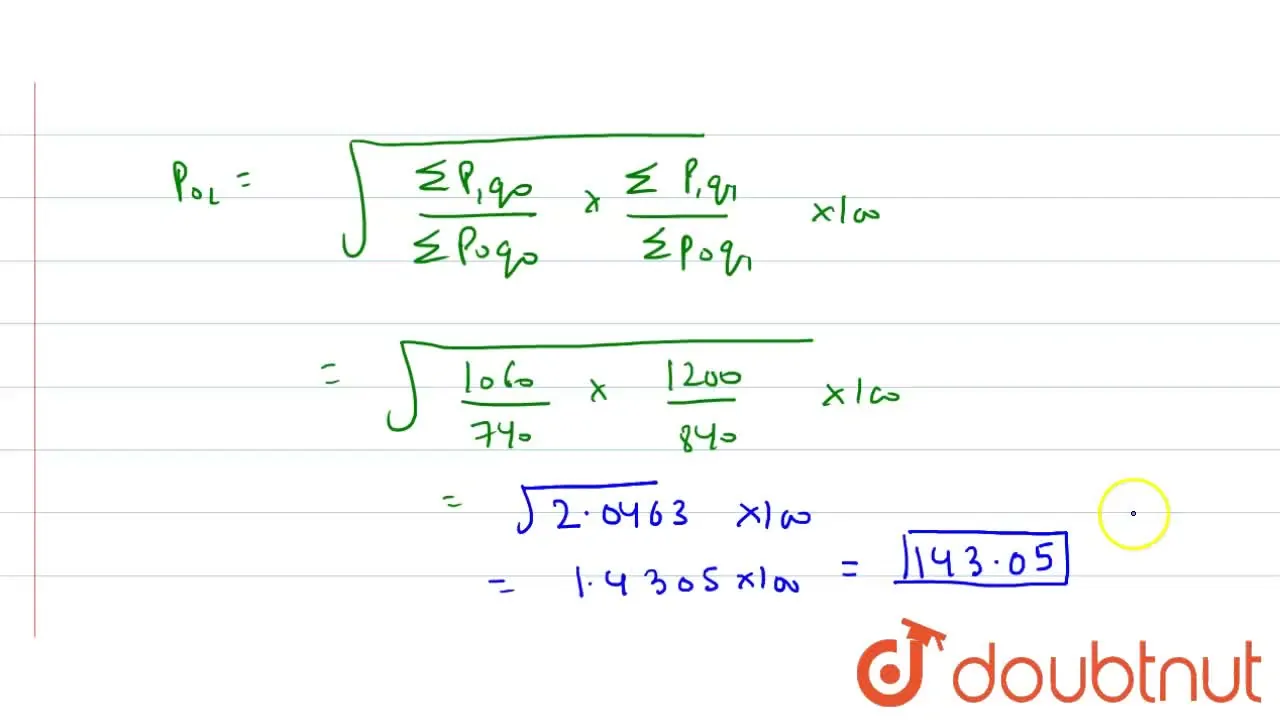 P₀₁ = √(ΣP₁q₀ / ΣP₀q₀ × ΣP₁q₁ / ΣP₀q₁) ×100
= √(1060 / 740 × 1200 / 840) ×100
= √2.0463 ×100
= 1.4305 ×100 = 143.05
doubtnut